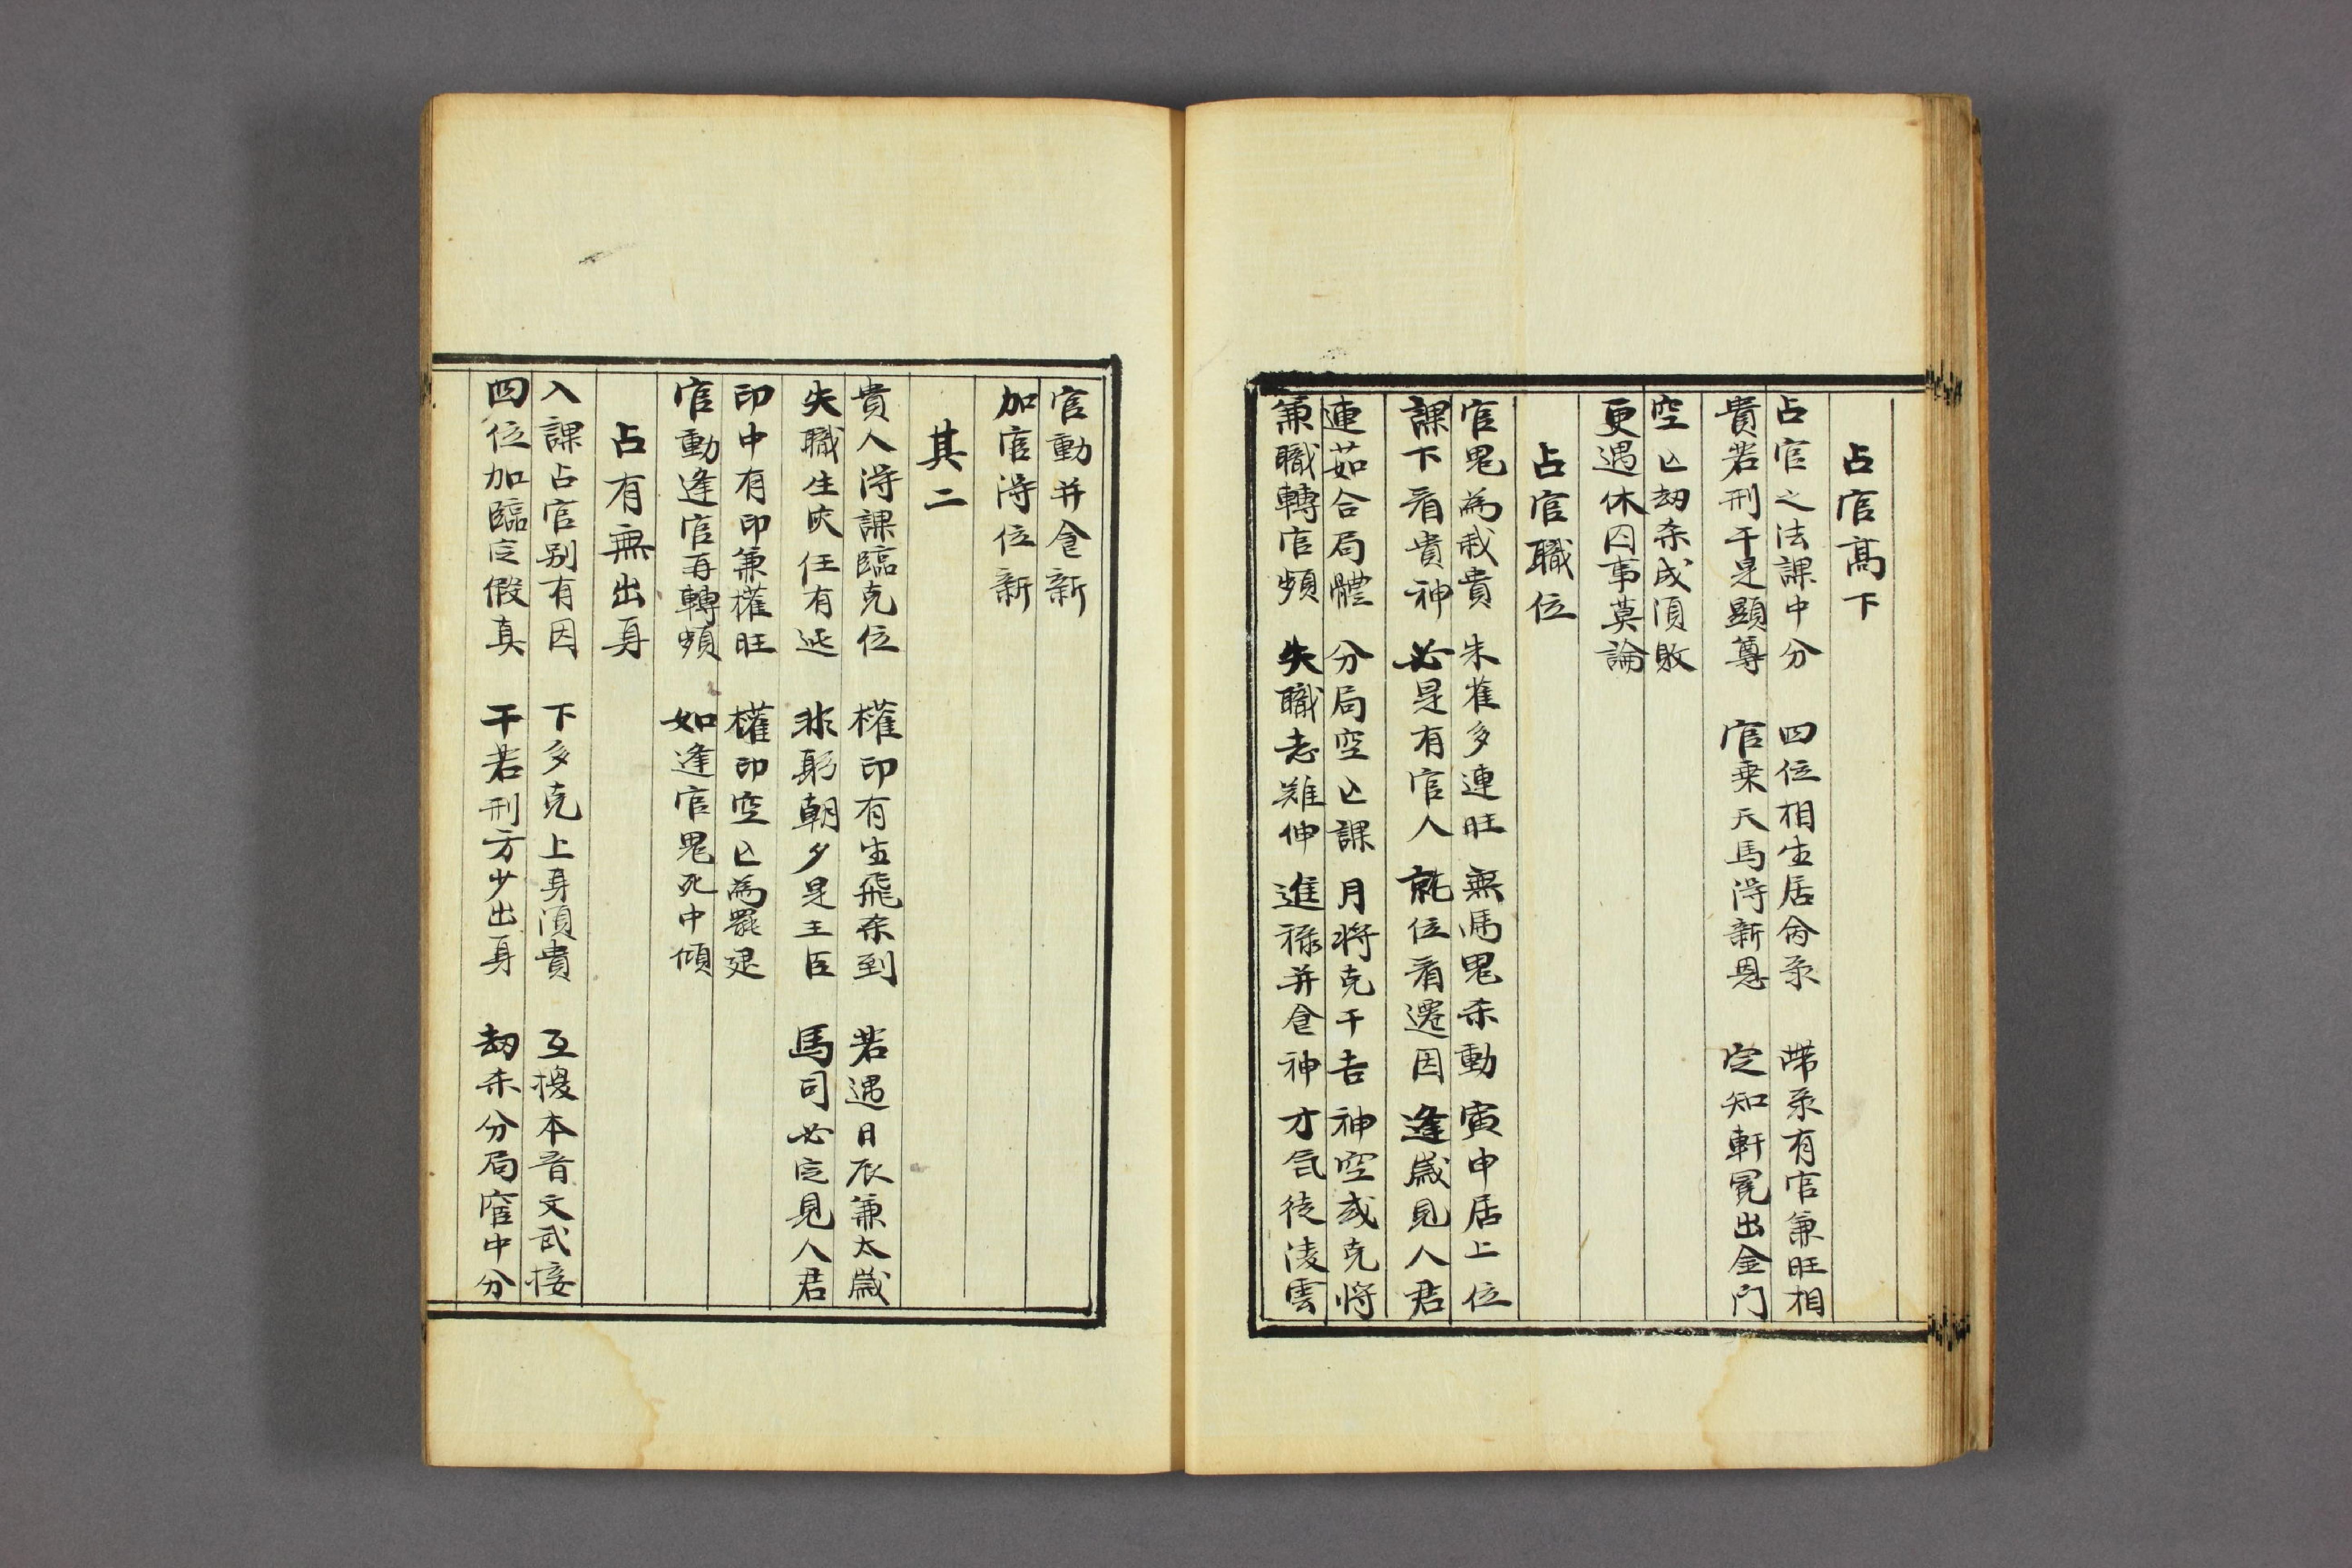 占官高下
占官之法課中分　四位相生居兩分　帶彔有官兼旺相
貴若刑干是顯尊　官乗天馬淂新恩　定知軒冕出金门
空亡刼杀成湏敗
更遇休囚事莫論
占官職位
官鬼為我貴　朱雀多連旺　無馬鬼杀動　寅申居上位
課下看貴神　必是有官人　就位看遷因　逢歲見人君
連茹合局體　分局空亡課　月将克干吉　神空或克将
兼職轉官頻　失職志難伸　進祿并食神　才氣徒淩雲
官動并食新
加官淂位新
其二
貴人淂課臨克位　權印有生飛杀到　若遇日辰兼太歲
失職生灾任有延　非躬朝夕是王臣　馬司必定見人君
印中有印兼權旺　權印空亡為罷退
官動逢官再轉頻　如逢官鬼死中傾
占有無出身
入課占官别有因　下多克上身湏貴　互換本音文武接
四位加臨定假真　干若刑方少出身　刼杀分局官中分